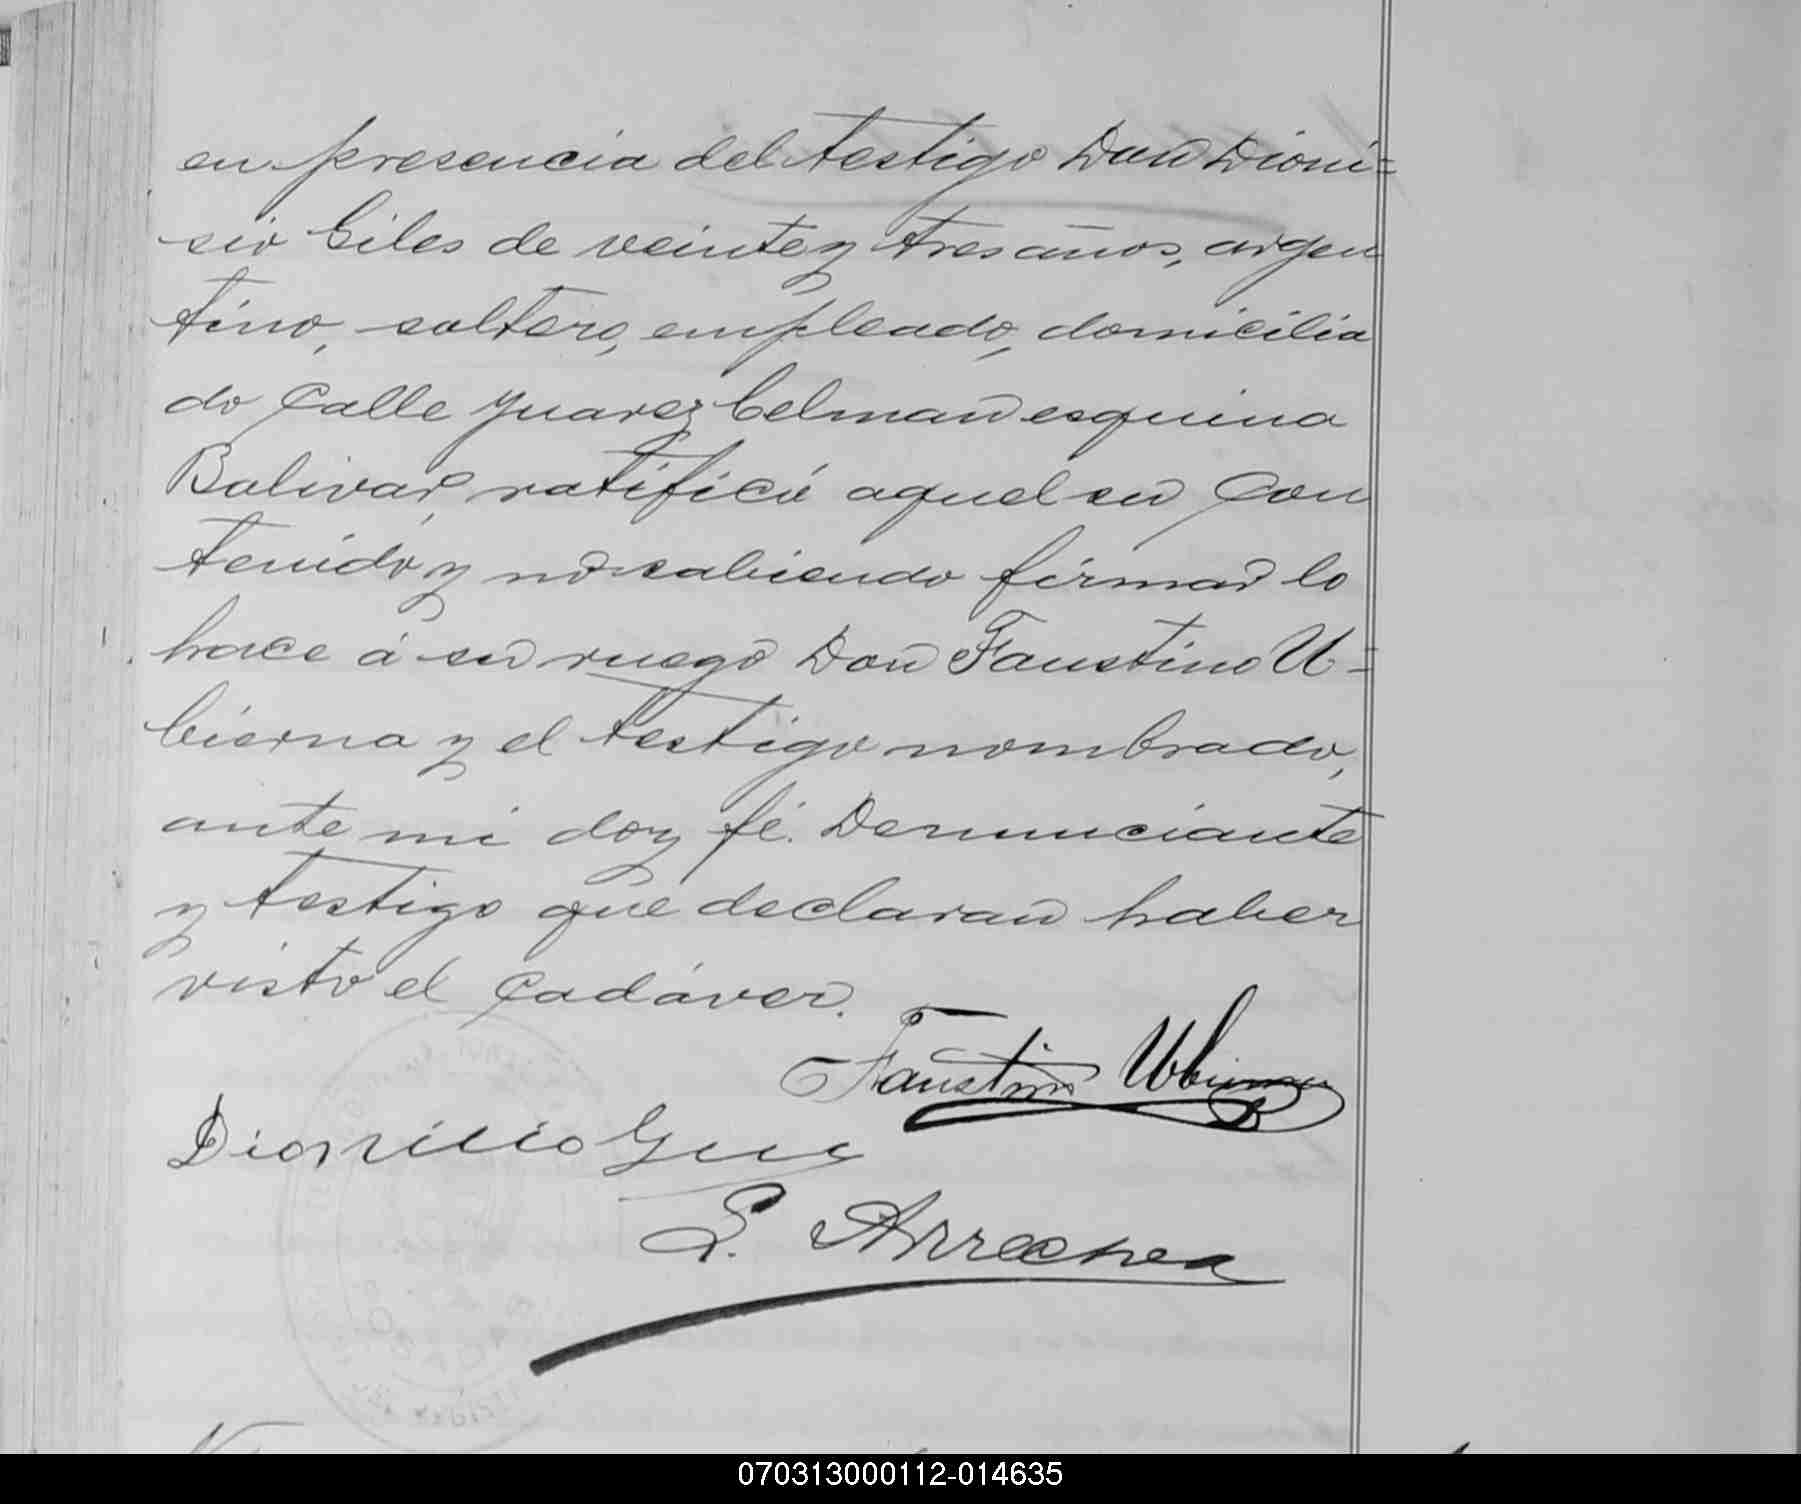 en presencia del testigo Don Dioni=
sio Giles de veinte y tres años, argen
tino, soltero, empleado, domicilia
do calle Juarez Celman esquina
Bolivar, ratificó aquel su con
tenido y no sabiendo firmar lo
hace á su ruego Don Faustino U=
bierna y el testigo nombrado,
ante mi doy fé. Denunciante
y testigo que declaran haber
visto el cadáver.
Faustino Ubierna
Dionisio
S. Arrechea
070313000112-014635